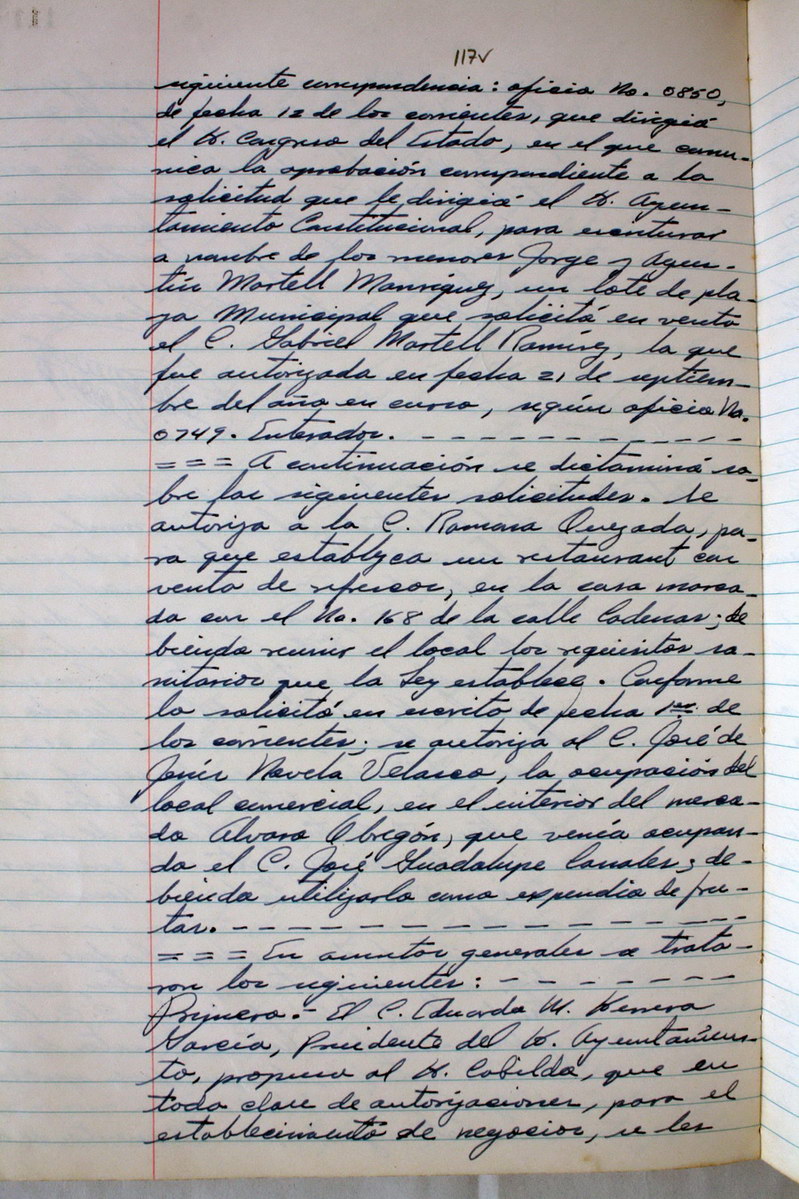 117v
siguiente correspondencia: oficio No. 0850,
de fecha 12 de los corrientes, que dirigió
el H. Congreso del Estado, en el que comu-
nica la aprobación correspondiente a la
solicitud que le dirigió el H. Ayun-
tamiento Constitucional, para escriturar
a nombre de los menores Jorge y Agus-
tín Martell Manríquez, un lote de pla-
ya Municipal que solicitó en venta
el C. Gabriel Martell Ramírez, la que
fue autorizada en fecha 21 de septiem-
bre del año en curso, según oficio No.
0749. Enterados. - - - - - - - - - - -
= = = A continuación se dictaminó so-
bre las siguientes solicitudes. Se
autoriza a la C. Ramona Quezada, pa-
ra que establezca un restaurant con
venta de refrescos, en la casa marca-
da con el No. 168 de la calle Cadenas; de
biendo reunir el local los requisitos sa-
nitarios que la Ley establece. Conforme
lo solicitó en escrito de fecha 1ro. de
los corrientes; se autoriza al C. José de
Jesús Velasco, la ocupación del
local comercial, en el interior del merca-
do Alvaro Obregón, que venía ocupan-
do el C. José Guadalupe Canales; de-
biendo utilizarlo como expendio de fru-
tas. - - - - - - - - - - - - - - - -
= = = En asuntos generales se trata-
ron los siguientes: - - - - - - -
Primero.- El C. Eduardo M. Herrera
García, Presidente del H. Ayuntamien-
to, propuso al H. Cabildo, que en
toda clase de autorizaciones, para el
establecimiento de negocios, se les